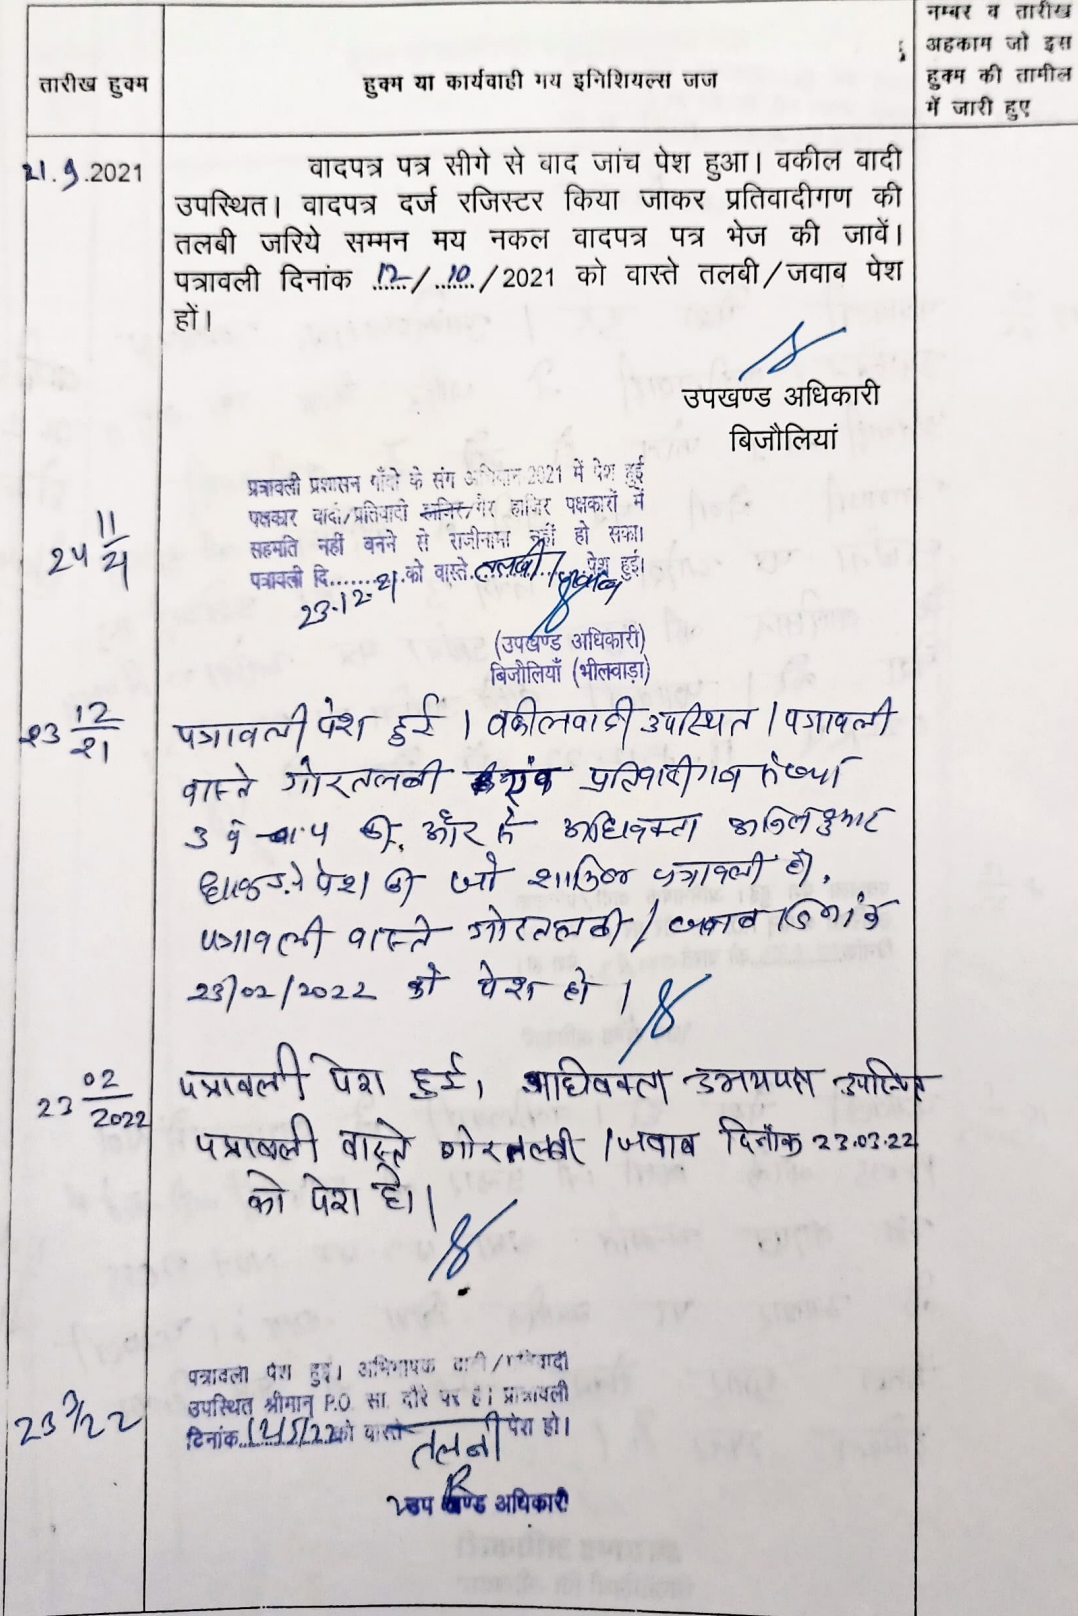 तारीख हुक्म
हुक्म या कार्यवाही मय इनिशियल्स जज
नम्बर व तारीख
अहकाम जो इस
हुक्म की तामील
में जारी हुए
21.9.2021
वादपत्र पत्र सीगे से बाद जांच पेश हुआ। वकील वादी
उपस्थित। वादपत्र दर्ज रजिस्टर किया जाकर प्रतिवादीगण की
तलबी जरिये सम्मन मय नकल वादपत्र पत्र भेज की जावें।
पत्रावली दिनांक 12/10/2021 को वास्ते तलबी/जवाब पेश
हों।
उपखण्ड अधिकारी
बिजौलियां
24 11/21
पत्रावली प्रशासन गाँवो के संग अभियान 2021 में पेश हुई
पक्षकार वादी/प्रतिवादी हाजिर/गैर हाजिर पक्षकारों में
सहमति नहीं बनने से राजीनामा नहीं हो सका।
पत्रावली दि........को वास्ते तलबी/जवाब पेश हुई।
23.12.21
(उपखण्ड अधिकारी)
बिजौलियाँ (भीलवाड़ा)
23 12/21
पत्रावली पेश हुई । वकील वादी उपस्थित । पत्रावली
वास्ते गोरतलबी एवं प्रतिवादीगण संख्या
3 व 4 की, और से अधिवक्ता अनिल कुमार
ने पेश की जो शामिल पत्रावली हो,
पत्रावली वास्ते गोरतलबी / जवाब दिनांक
23/02/2022 को पेश हो ।
23 02/2022
पत्रावली पेश हुई, अधिवक्ता उभयपक्ष उपस्थित
पत्रावली वास्ते गोरतलबी /जवाब दिनांक 23.03.22
को पेश हो।
23 3/22
पत्रावली पेश हुई। अभिभाषक वादी/प्रतिवादी
उपस्थित श्रीमान् P.O. सा. दौरे पर है। पत्रावली
दिनांक 12/5/22 को वास्ते तलबी पेश हो।
उप खण्ड अधिकारी